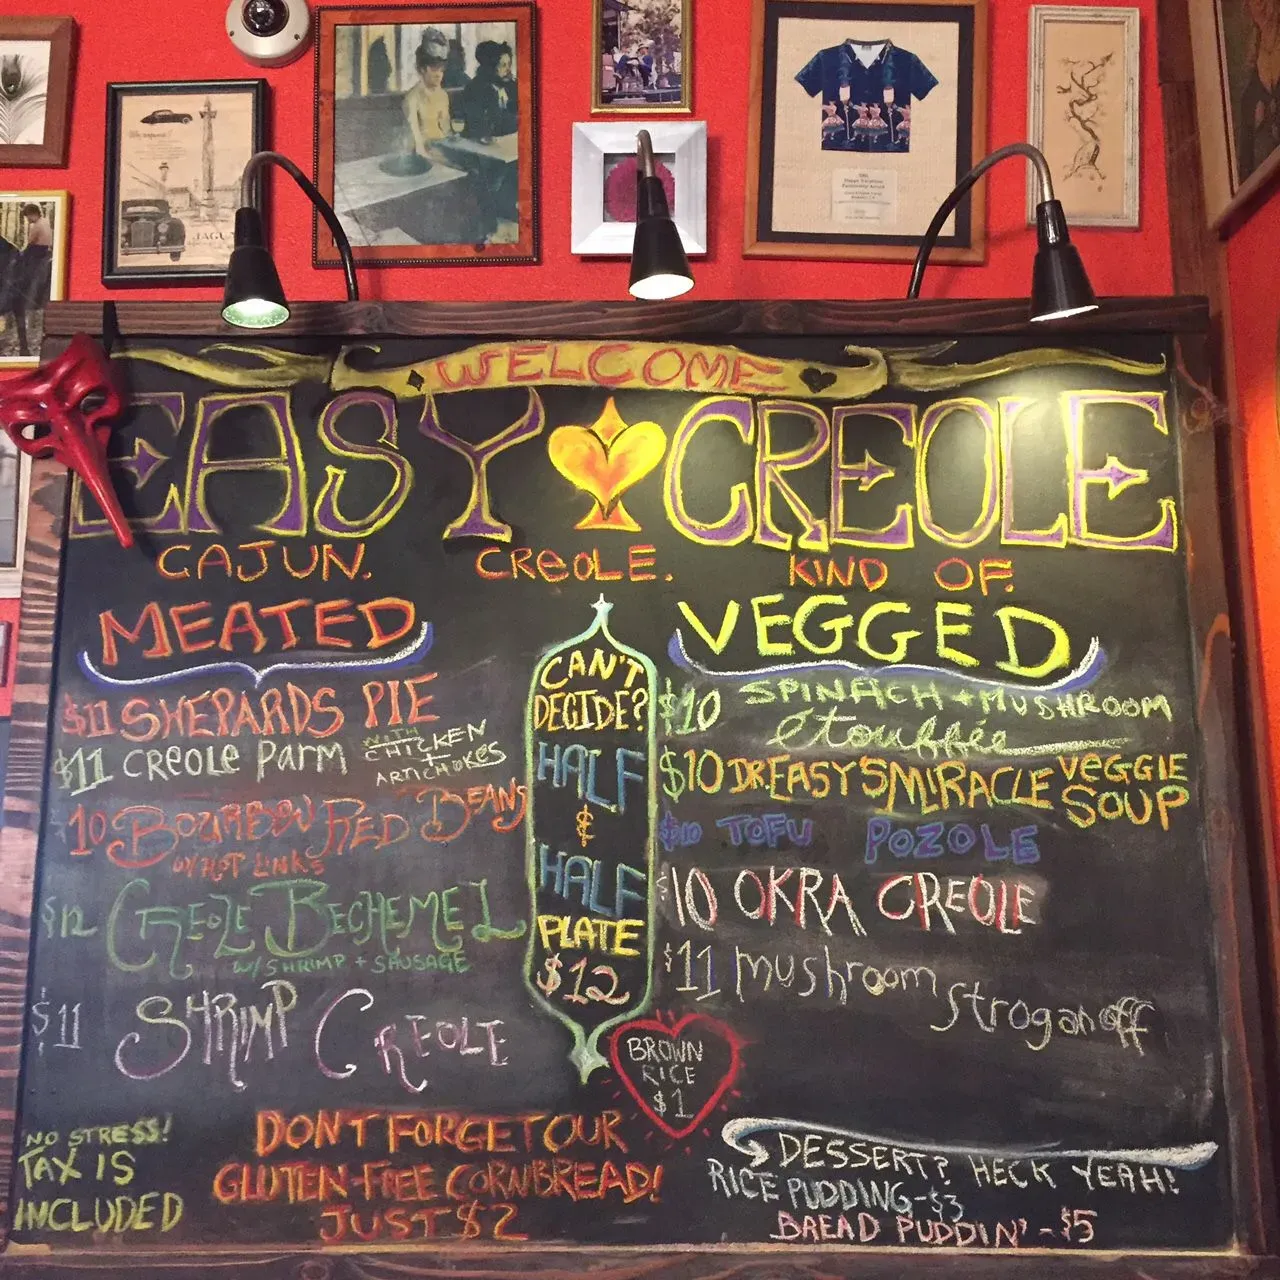 JAGUAR
WELCOME
EASY CREOLE
CAJUN. CREOLE. KIND OF.
MEATED
$11 SHEPARDS PIE
$11 CREOLE PARM WITH CHICKEN + ARTICHOKES
10 BOURBON RED BEANS
W/ HOT LINKS
$12 CREOLE BECHEMEL
W/ SHRIMP + SAUSAGE
$11 SHRIMP CREOLE
CAN'T
DECIDE?
HALF
&
HALF
PLATE
$12
VEGGED
$10 SPINACH + MUSHROOM
étouffée
$10 DR. EASY'S MIRACLE VEGGIE SOUP
$10 TOFU POZOLE
$10 OKRA CREOLE
$11 mushroom
stroganoff
BROWN
RICE
$1
NO STRESS!
TAX IS
INCLUDED
DON'T FORGET OUR
GLUTEN-FREE CORNBREAD!
JUST $2
DESSERT? HECK YEAH!
RICE PUDDING - $3
BREAD PUDDIN' - $5